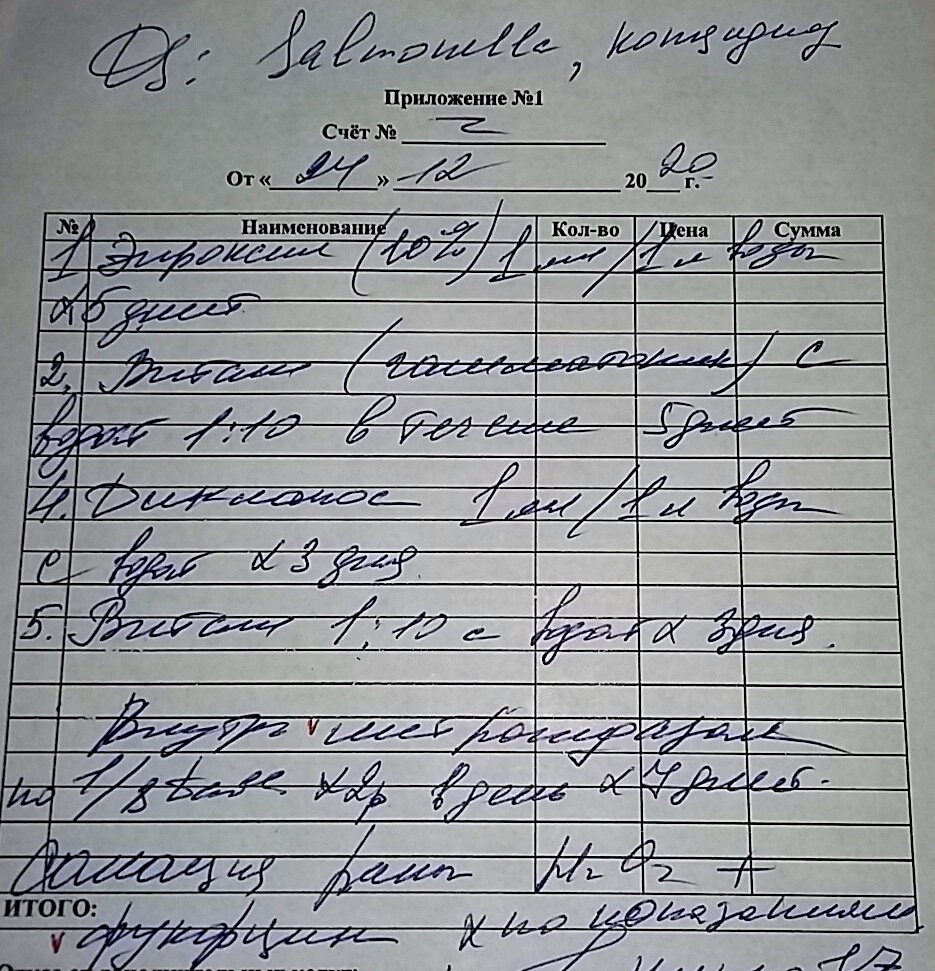 Ds: Salmonella, кокцидид
Приложение №1
Счёт № 2
От « 24 » 12 2020 г.
№ Наименование Кол-во Цена Сумма
1 Энроксил (10%) 1 мл / 1 л воды
х 5 дней
2. Витам (гамматоник) с
водой 1:10 в течение 5 дней
4. Дикланос 1 мл / 1 л воды
с водой х 3 дня
5. Витам 1:10 с водой х 3 дня.
Внутрь v метронидазол
по 1/8 табл х 2р в день х 7 дней.
Санация раны H2O2 +
ИТОГО:
v фукорцин х по показаниям